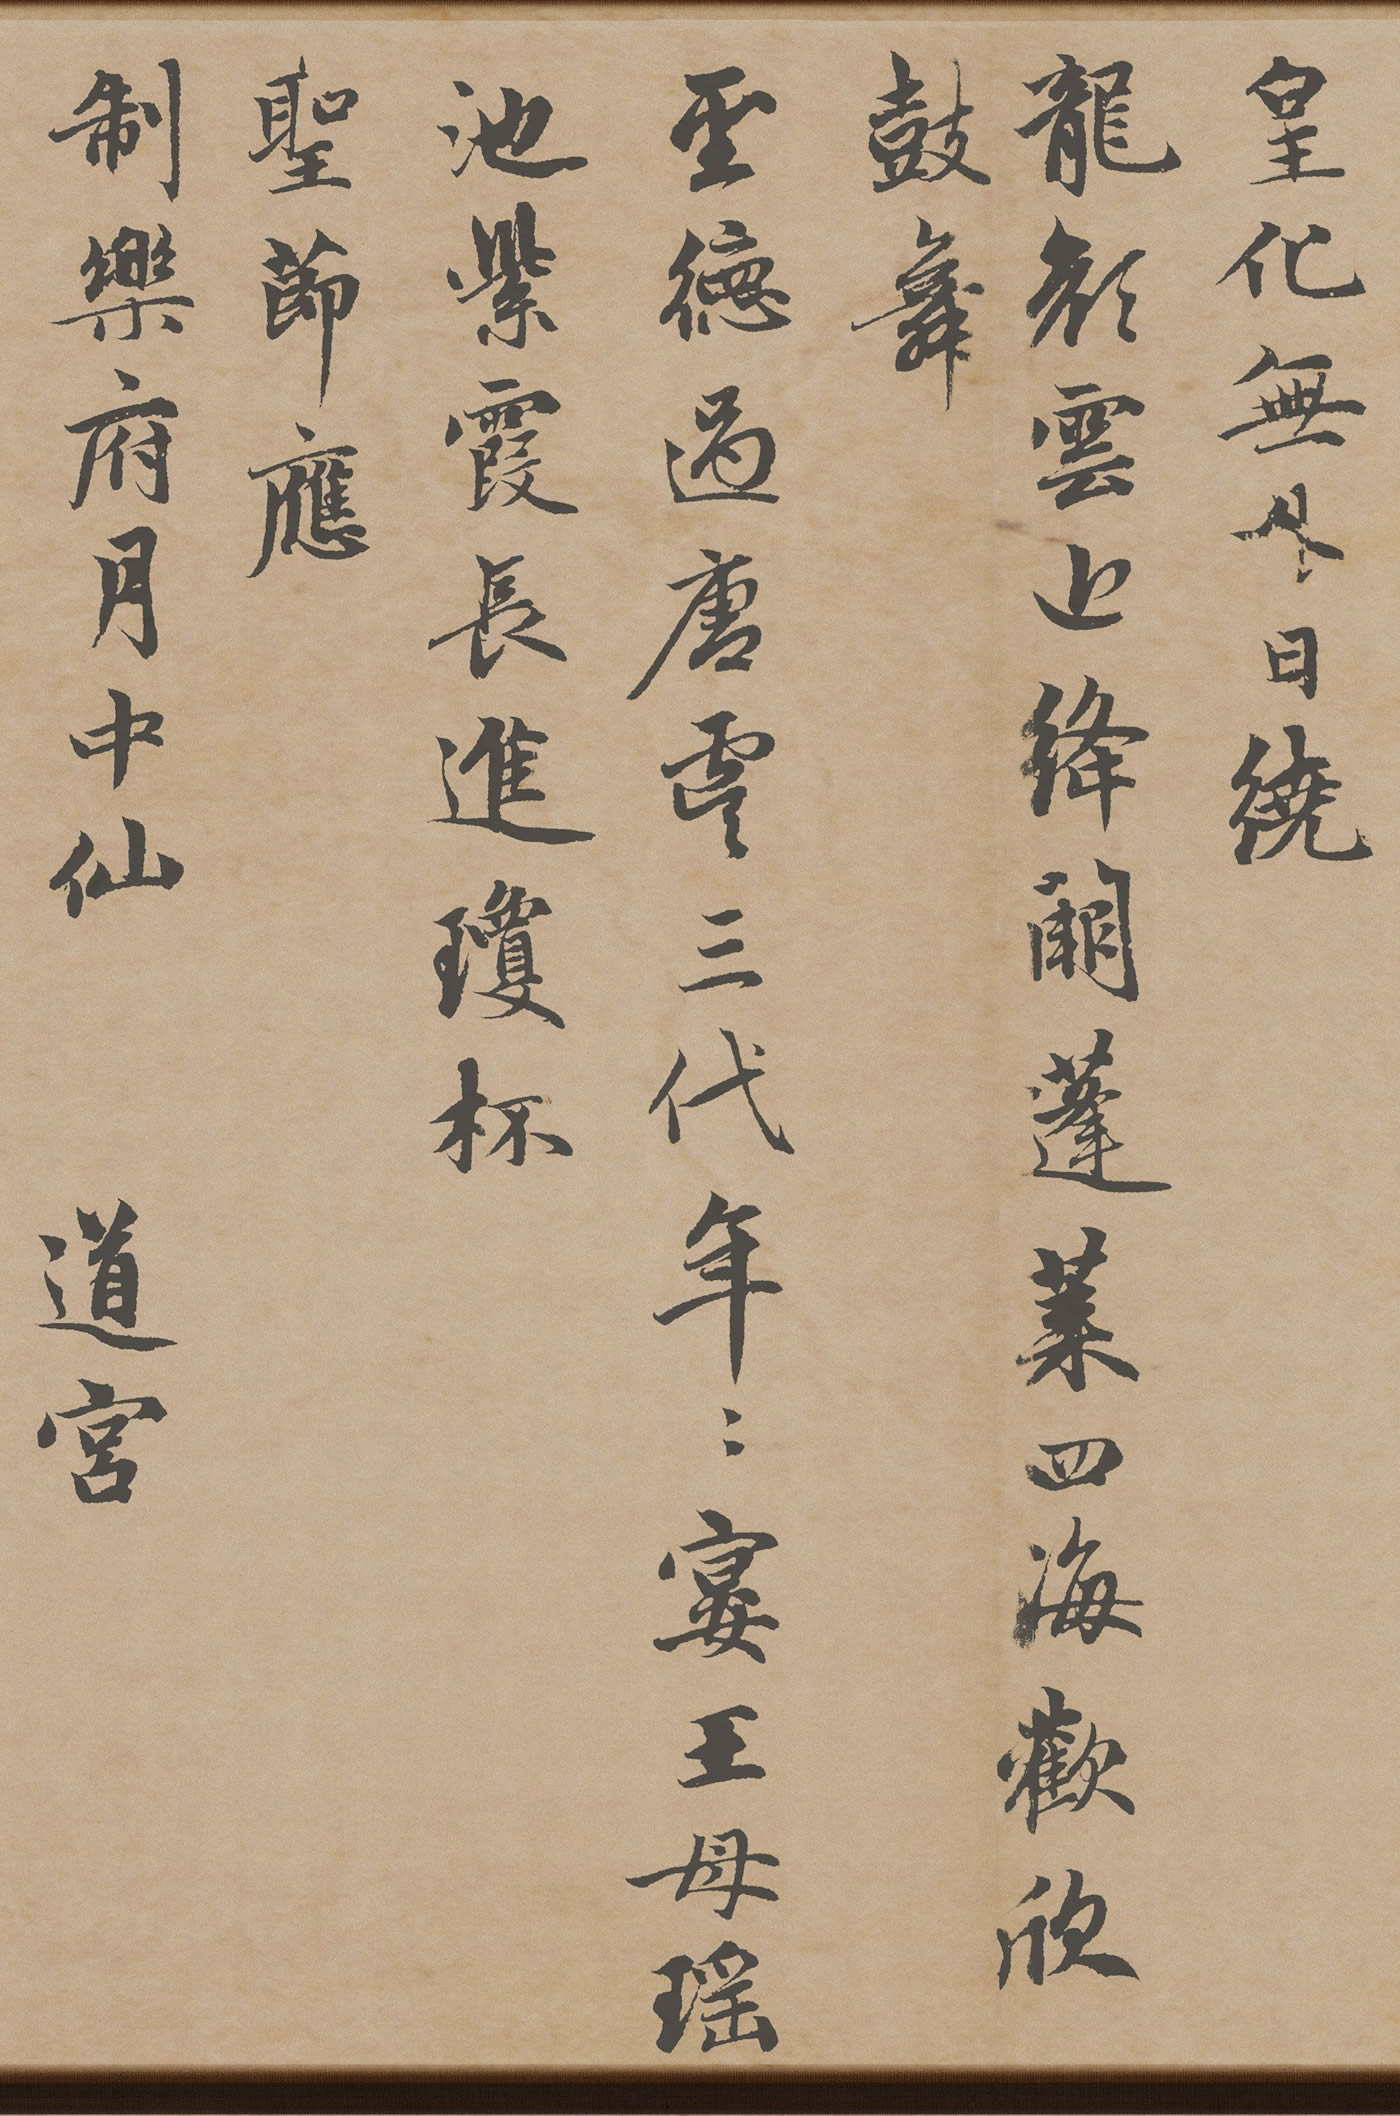 皇化無外日繞
龍顏雲上絳闕蓬萊四海歡欣
鼓舞
聖德過唐虞三代年〻宴王母瑤
池紫霞長進瓊杯
聖節應
制樂府月中仙
道宮